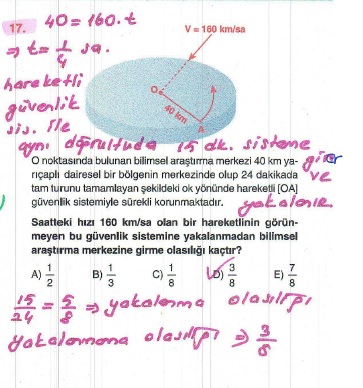 17. 40=160.t
V = 160 km/sa
⇒ t = 1/4 sa.
hareketli
güvenlik
sis. ile
O
40 km
A
aynı doğrultuda 15 dk. sisteme
girer
ve
yakalanır
O noktasında bulunan bilimsel araştırma merkezi 40 km ya-
rıçaplı dairesel bir bölgenin merkezinde olup 24 dakikada
tam turunu tamamlayan şekildeki ok yönünde hareketli [OA]
güvenlik sistemiyle sürekli korunmaktadır.
Saatteki hızı 160 km/sa olan bir hareketlinin görün-
meyen bu güvenlik sistemine yakalanmadan bilimsel
araştırma merkezine girme olasılığı kaçtır?
A) 1/2 B) 1/3 C) 1/8 D) 3/8 E) 7/8
15/24 = 5/8 ⇒ yakalanma olasılığı
Yakalanmama olasılığı ⇒ 3/8